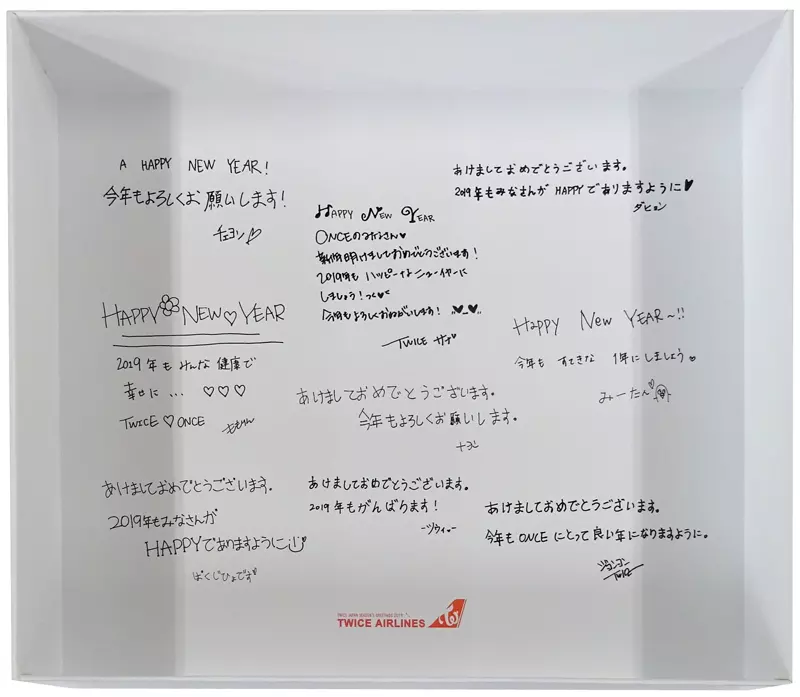 A HAPPY NEW YEAR!
今年もよろしくお願いします!
チェヨン
あけましておめでとうございます。
2019年もみなさんが HAPPYでありますように♥
ダヒョン
HAPPY NEW YEAR
ONCEのみなさん♥
新年明けましておめでとうございます!
2019年も ハッピーなニューイヤーに
しましょう!
今年もよろしくおねがいします!
TWICE サナ
HAPPY NEW♡YEAR
2019年も みんな 健康で
幸せに... ♡♡♡
TWICE ♡ ONCE
Happy New YEAR~!!
今年も すてきな 1年にしましょう
みーたん
あけましておめでとうございます。
今年もよろしくお願いします。
ナヨン
あけましておめでとうございます。
2019年もみなさんが
HAPPYでありますように
ぱくじひょです
あけましておめでとうございます。
2019年もがんばります!
-ツウィ-
あけましておめでとうございます。
今年もONCEにとって良い年になりますように。
ジョンヨン
TWICE JAPAN SEASON'S GREETINGS 2019
TWICE AIRLINES